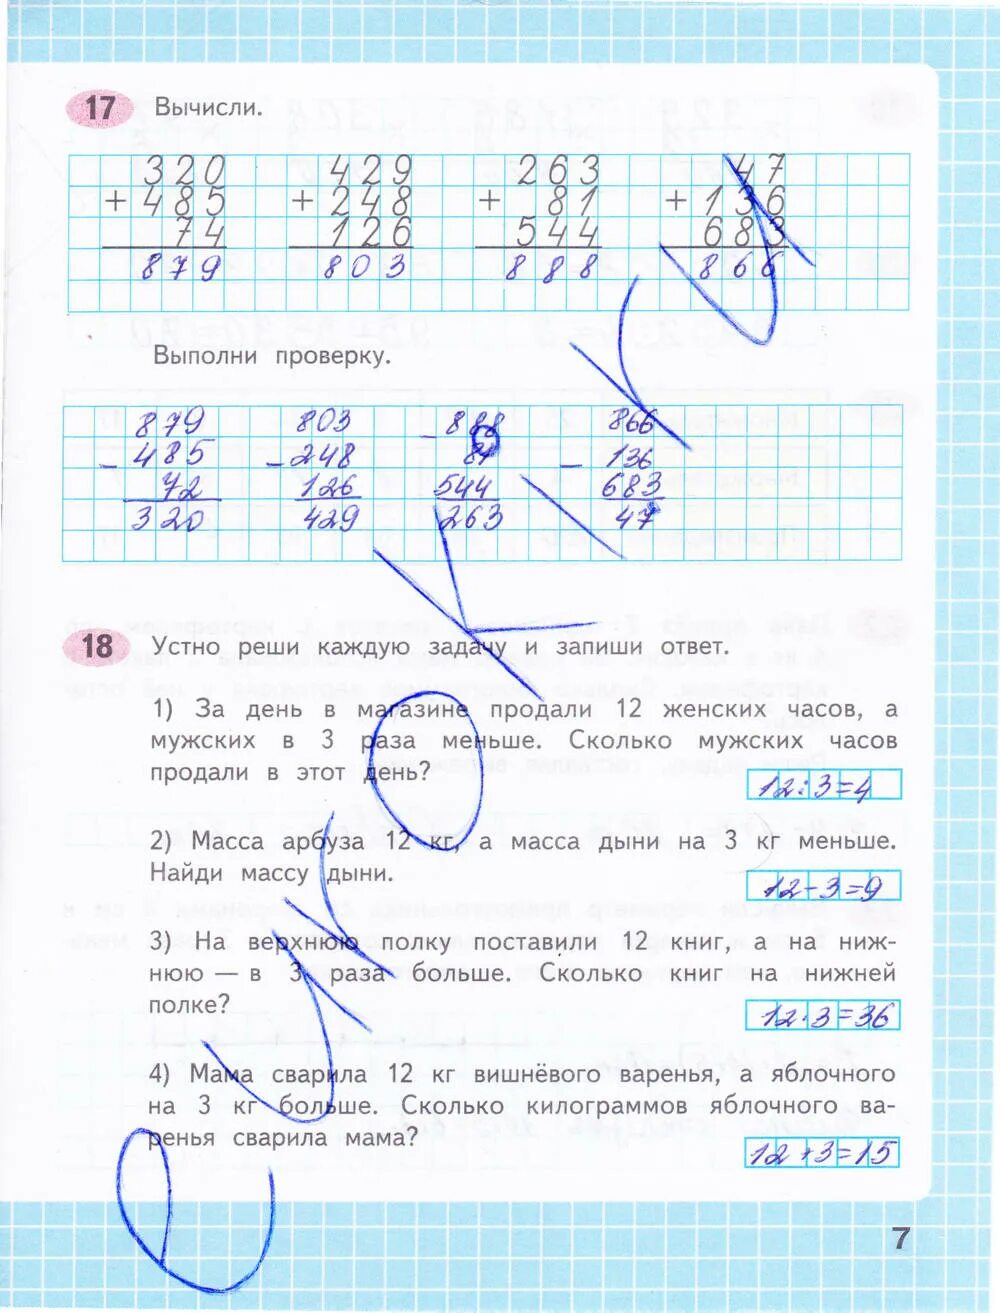 17 Вычисли.
320 429 263 47
+ 485 + 248 + 81 + 136
74 126 544 683
879 803 888 866
Выполни проверку.
879 803 - 888 866
- 485 - 248 81 - 136
72 126 544 683
320 429 263 47
18 Устно реши каждую задачу и запиши ответ.
1) За день в магазине продали 12 женских часов, а
мужских в 3 раза меньше. Сколько мужских часов
продали в этот день?
12:3=4
2) Масса арбуза 12 кг, а масса дыни на 3 кг меньше.
Найди массу дыни.
12-3=9
3) На верхнюю полку поставили 12 книг, а на ниж-
нюю — в 3 раза больше. Сколько книг на нижней
полке?
12·3=36
4) Мама сварила 12 кг вишнёвого варенья, а яблочного
на 3 кг больше. Сколько килограммов яблочного ва-
ренья сварила мама?
12+3=15
7